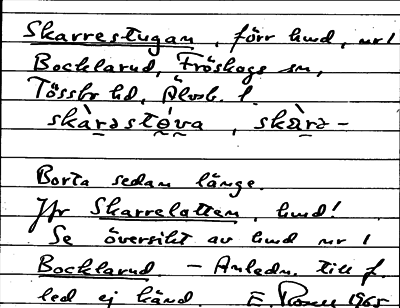 Skarrestugan, förr hmd, nr 1
Bocklarud, Fröskogs sn,
Tössbo hd, Älvsb. l.
skàrəstə́va, skàrə-
Borta sedan länge.
Jfr Skarrelatten, hmd!
Se översikt av hmd nr 1
Bocklarud. - Anledn. till f.
led ej känd. E. 1965